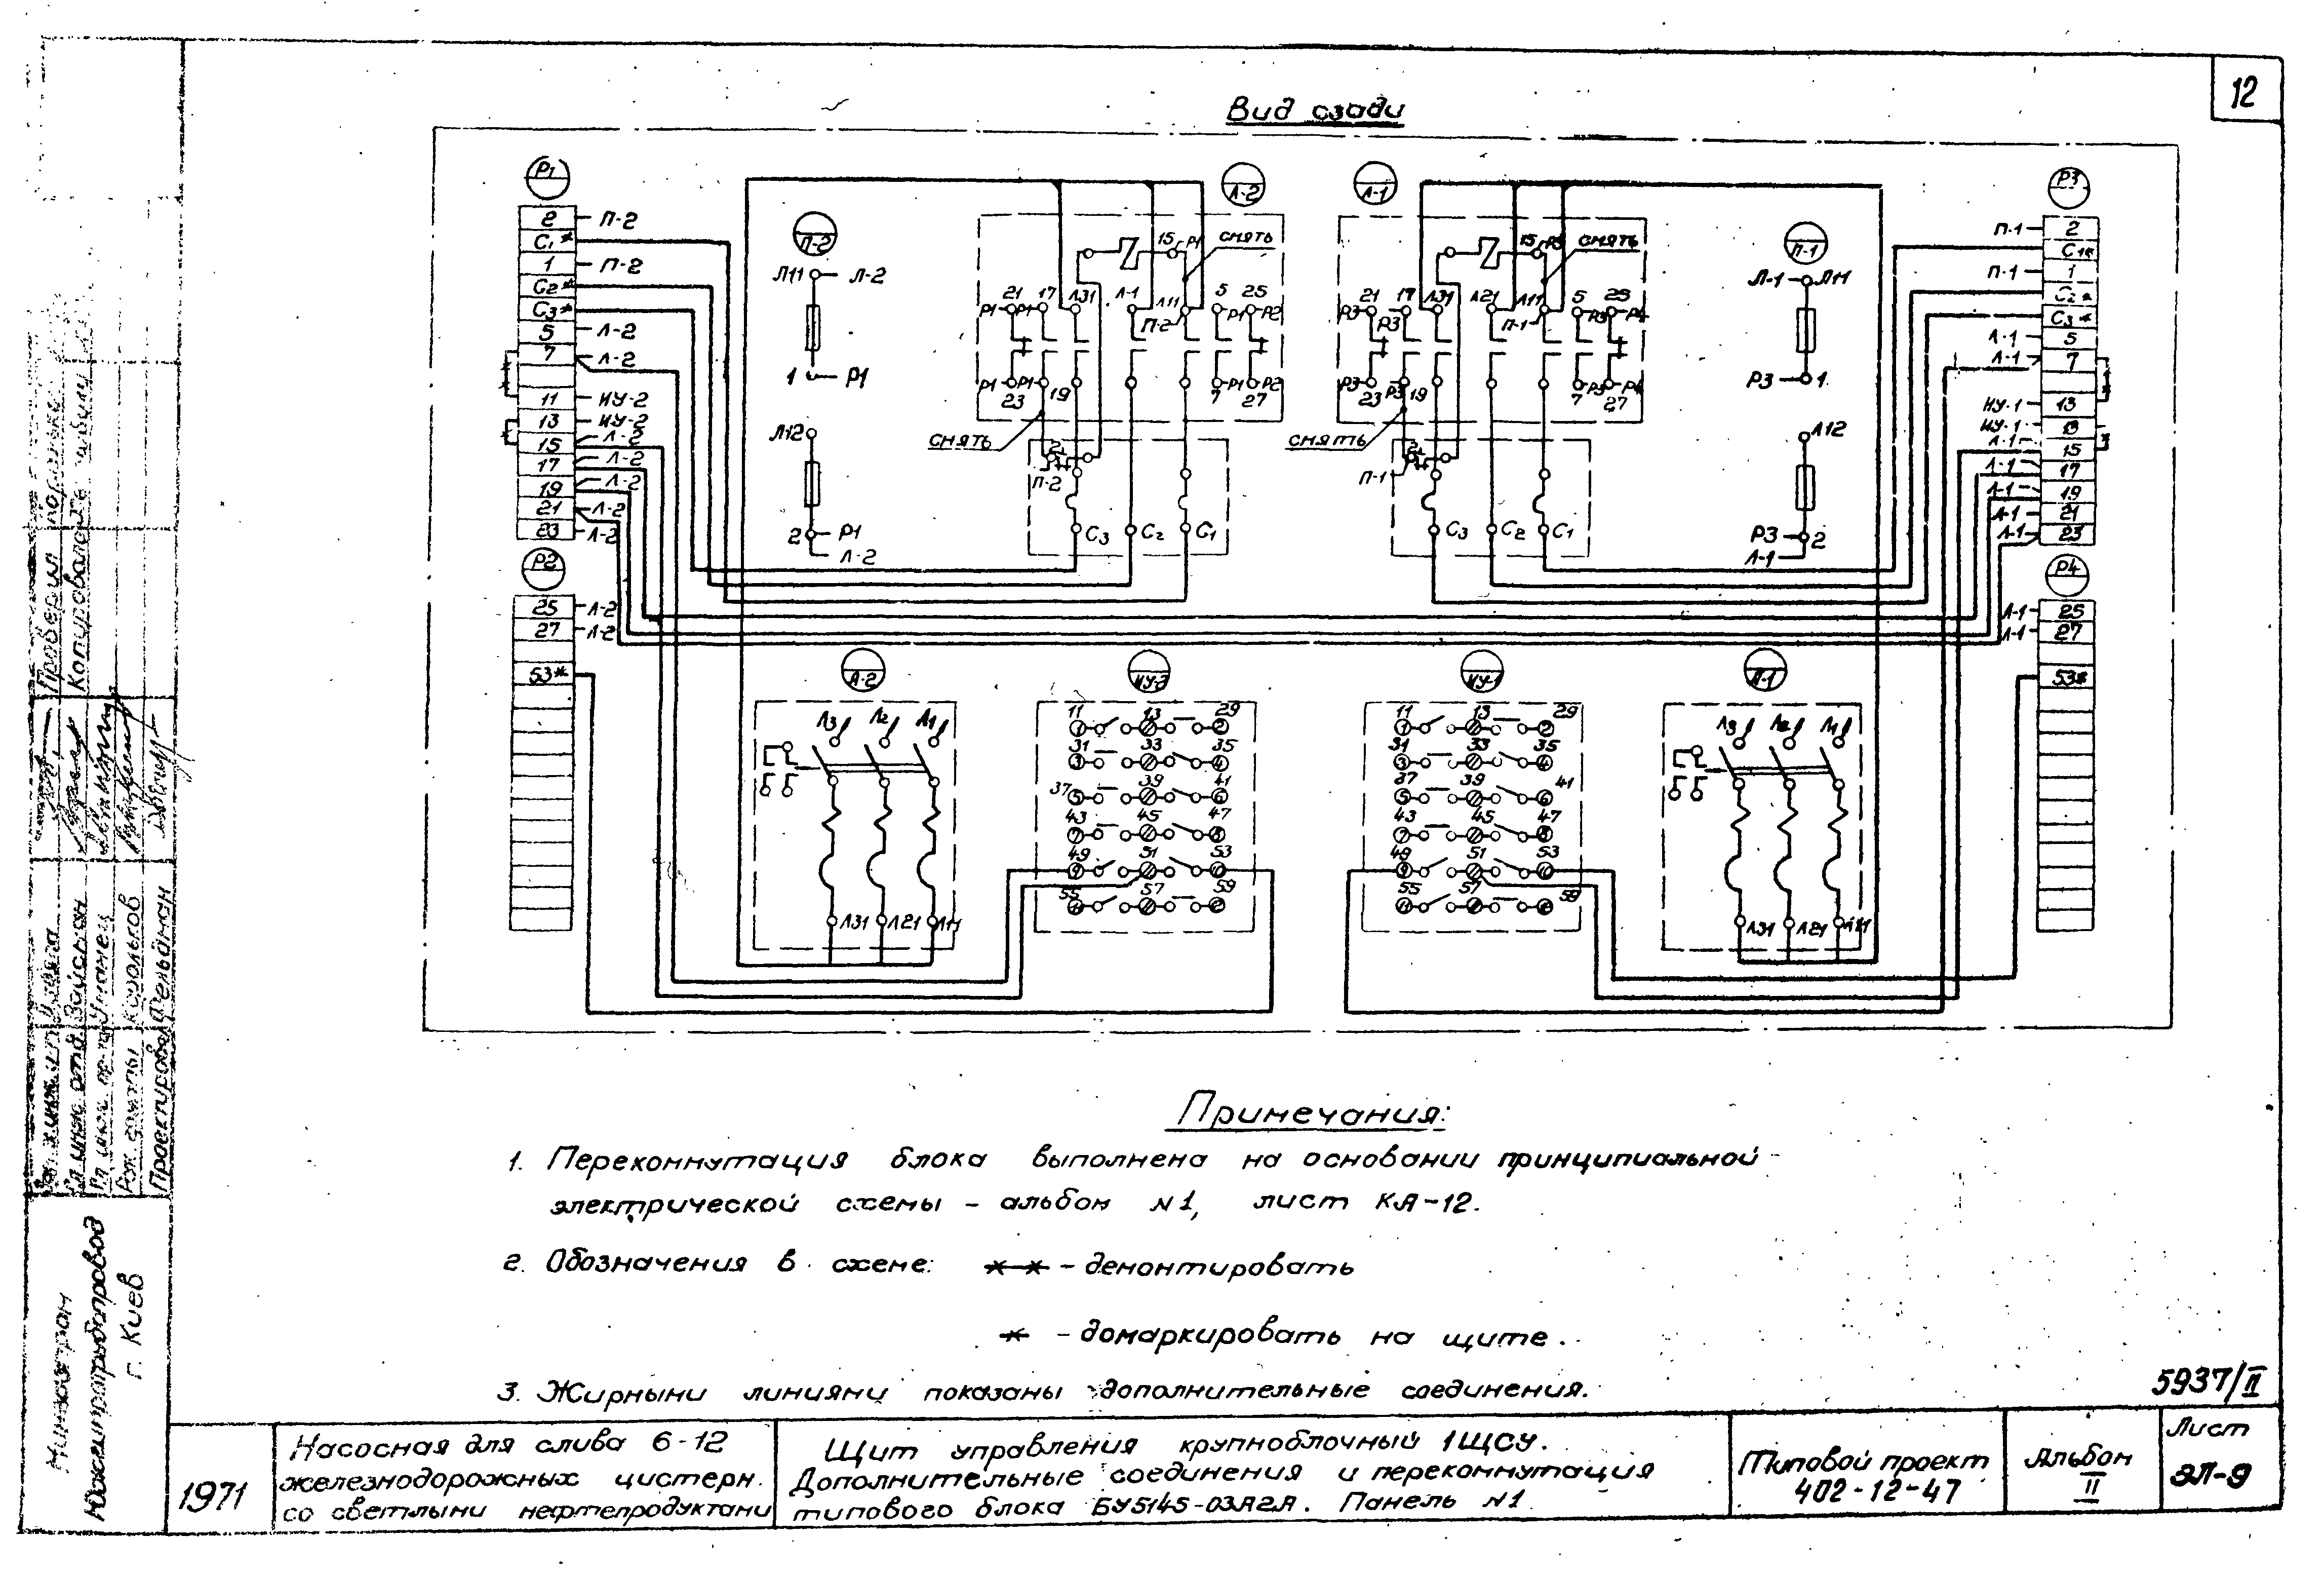 12
Вид сзади
Р1
2 П-2
С1*
1 П-2
С2*
С3*
5 Л-2
7 Л-2
11 ИУ-2
13 ИУ-2
15 Л-2
17 Л-2
19 Л-2
21 Л-2
23 Л-2
Р2
25 Л-2
27 Л-2
53*
П-2
Л11 Л-2
1 Р1
Л12
2 Р1
Л-2
Л-2
15 Р1 снять
21 17 Л31 Л-1 Л11 5 25
Р1 Р1 П-2 Р1 Р2
Р1 Р1 Р1 Р2
23 19 7 27
снять
П-2
С3 С2 С1
Л-1
15 Р3 снять
21 17 Л31 Л21 Л11 5 25
Р3 Р3 П-1 Р3 Р4
Р3 Р3 Р3 Р4
23 19 7 27
снять
П-1
С3 С2 С1
П-1
Л-1 Л11
Р3 1
Л12
Р3 2
Л-1
Р3
П-1 2
С1*
П-1 1
С2*
С3*
Л-1 5
Л-1 7
ИУ-1 13
ИУ-1 13
Л-1 15
Л-1 17
Л-1 19
Л-1 21
Л-1 23
Р4
Л-1 25
Л-1 27
53*
А-2
Л3 Л2 Л1
Л31 Л21 Л11
ИУ-2
11 13 29
31 33 35
37 39 41
43 45 47
49 51 53
55 57 59
ИУ-1
11 13 29
31 33 35
37 39 41
43 45 47
49 51 53
55 57 59
Л3 Л2 Л1
Л31 Л21 Л11
Примечания:
1. Перекоммутация блока выполнена на основании принципиальной
электрической схемы – альбом №1, лист КА-12.
2. Обозначения в схеме: ×–× – демонтировать
× – домаркировать на щите.
3. Жирными линиями показаны дополнительные соединения.
5937/II
1971
Насосная для слива 6-12
железнодорожных цистерн
со светлыми нефтепродуктами
Щит управления крупноблочный 1ЩСУ.
Дополнительные соединения и перекоммутация
типового блока БУ5145-03А2А. Панель №1
Типовой проект
402-12-47
Альбом
II
Лист
ЭЛ-9
г. Киев
Проверил
Копировала
Вайсман
Уманец
Корольков
Проектировал Фельдман